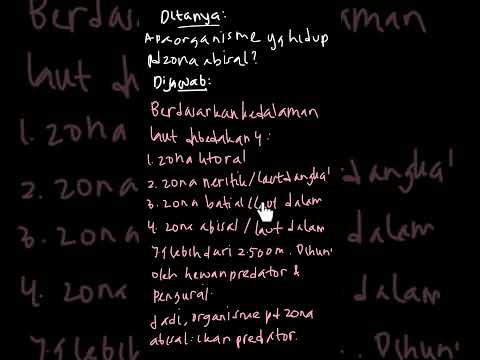 Ditanya:
Apa organisme yg hidup
pd zona abisal?
Dijawab:
Berdasarkan kedalaman
laut dibedakan 4:
1. zona litoral
2. zona neritik/laut dangkal
3. zona batial/laut dalam
4. zona abisal/laut dalam
yg lebih dari 2.500m. Dihuni
oleh hewan predator &
pengurai.
Jadi, organisme pd zona
abisal: ikan predator.